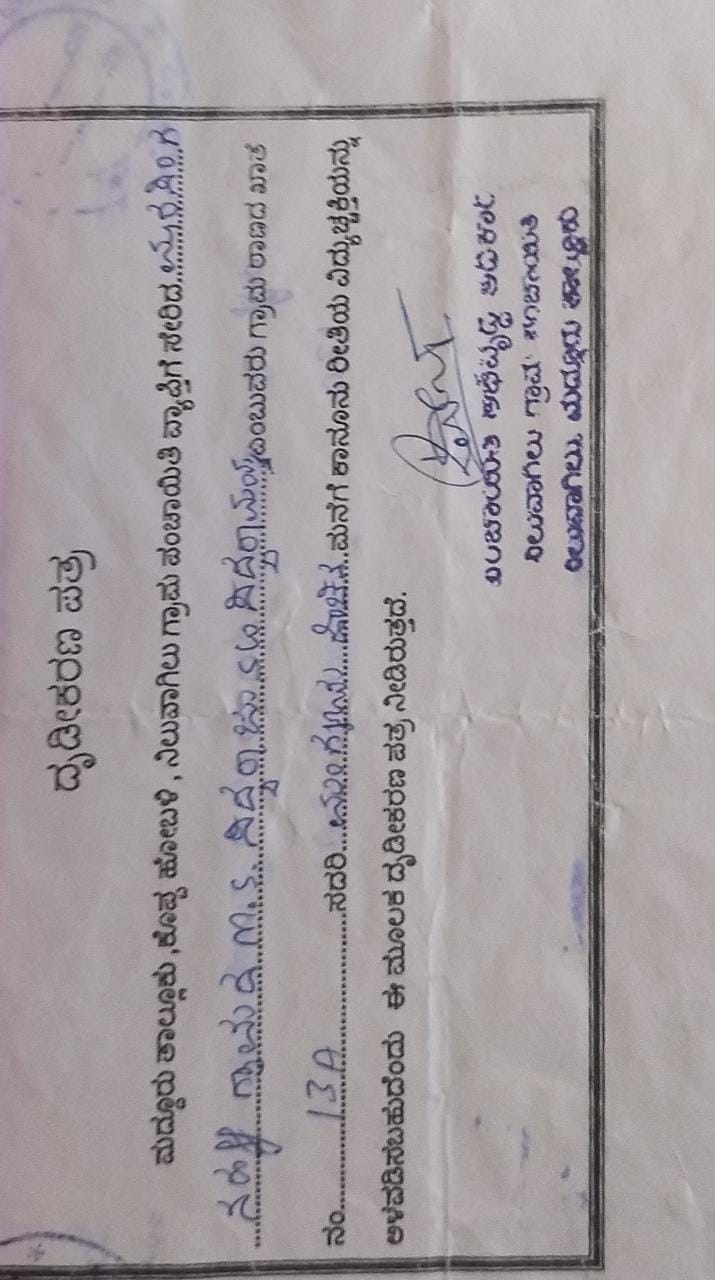 ದೃಢೀಕರಣ ಪತ್ರ
ಮದ್ದೂರು ತಾಲ್ಲೂಕು ,ಕೊಪ್ಪ ಹೋಬಳಿ , ನಿಲುವಾಗಿಲು ಗ್ರಾಮ ಪಂಚಾಯಿತಿ ವ್ಯಾಪ್ತಿಗೆ ಸೇರಿದ
ಗ್ರಾಮದ M.S. ಸಿದ್ದರಾಜು S/o ಸಿದ್ದರಾಮಯ್ಯ ಎಂಬುವರು ಗ್ರಾಮ ಠಾಣದ ಖಾತೆ
ನಂ. 13A ಸದರಿ ಮನೆಗೆ ಕಾನೂನು ರೀತಿಯ ವಿದ್ಯುಚ್ಛಕ್ತಿಯನ್ನು
ಅಳವಡಿಸಬಹುದೆಂದು ಈ ಮೂಲಕ ದೃಢೀಕರಣ ಪತ್ರ ನೀಡಿರುತ್ತದೆ.
ಪಂಚಾಯಿತಿ ಅಭಿವೃದ್ಧಿ ಅಧಿಕಾರಿ
ನಿಲುವಾಗಿಲು ಗ್ರಾಮ ಪಂಚಾಯಿತಿ
ನಿಲುವಾಗಿಲು, ಮದ್ದೂರು ತಾಲ್ಲೂಕು